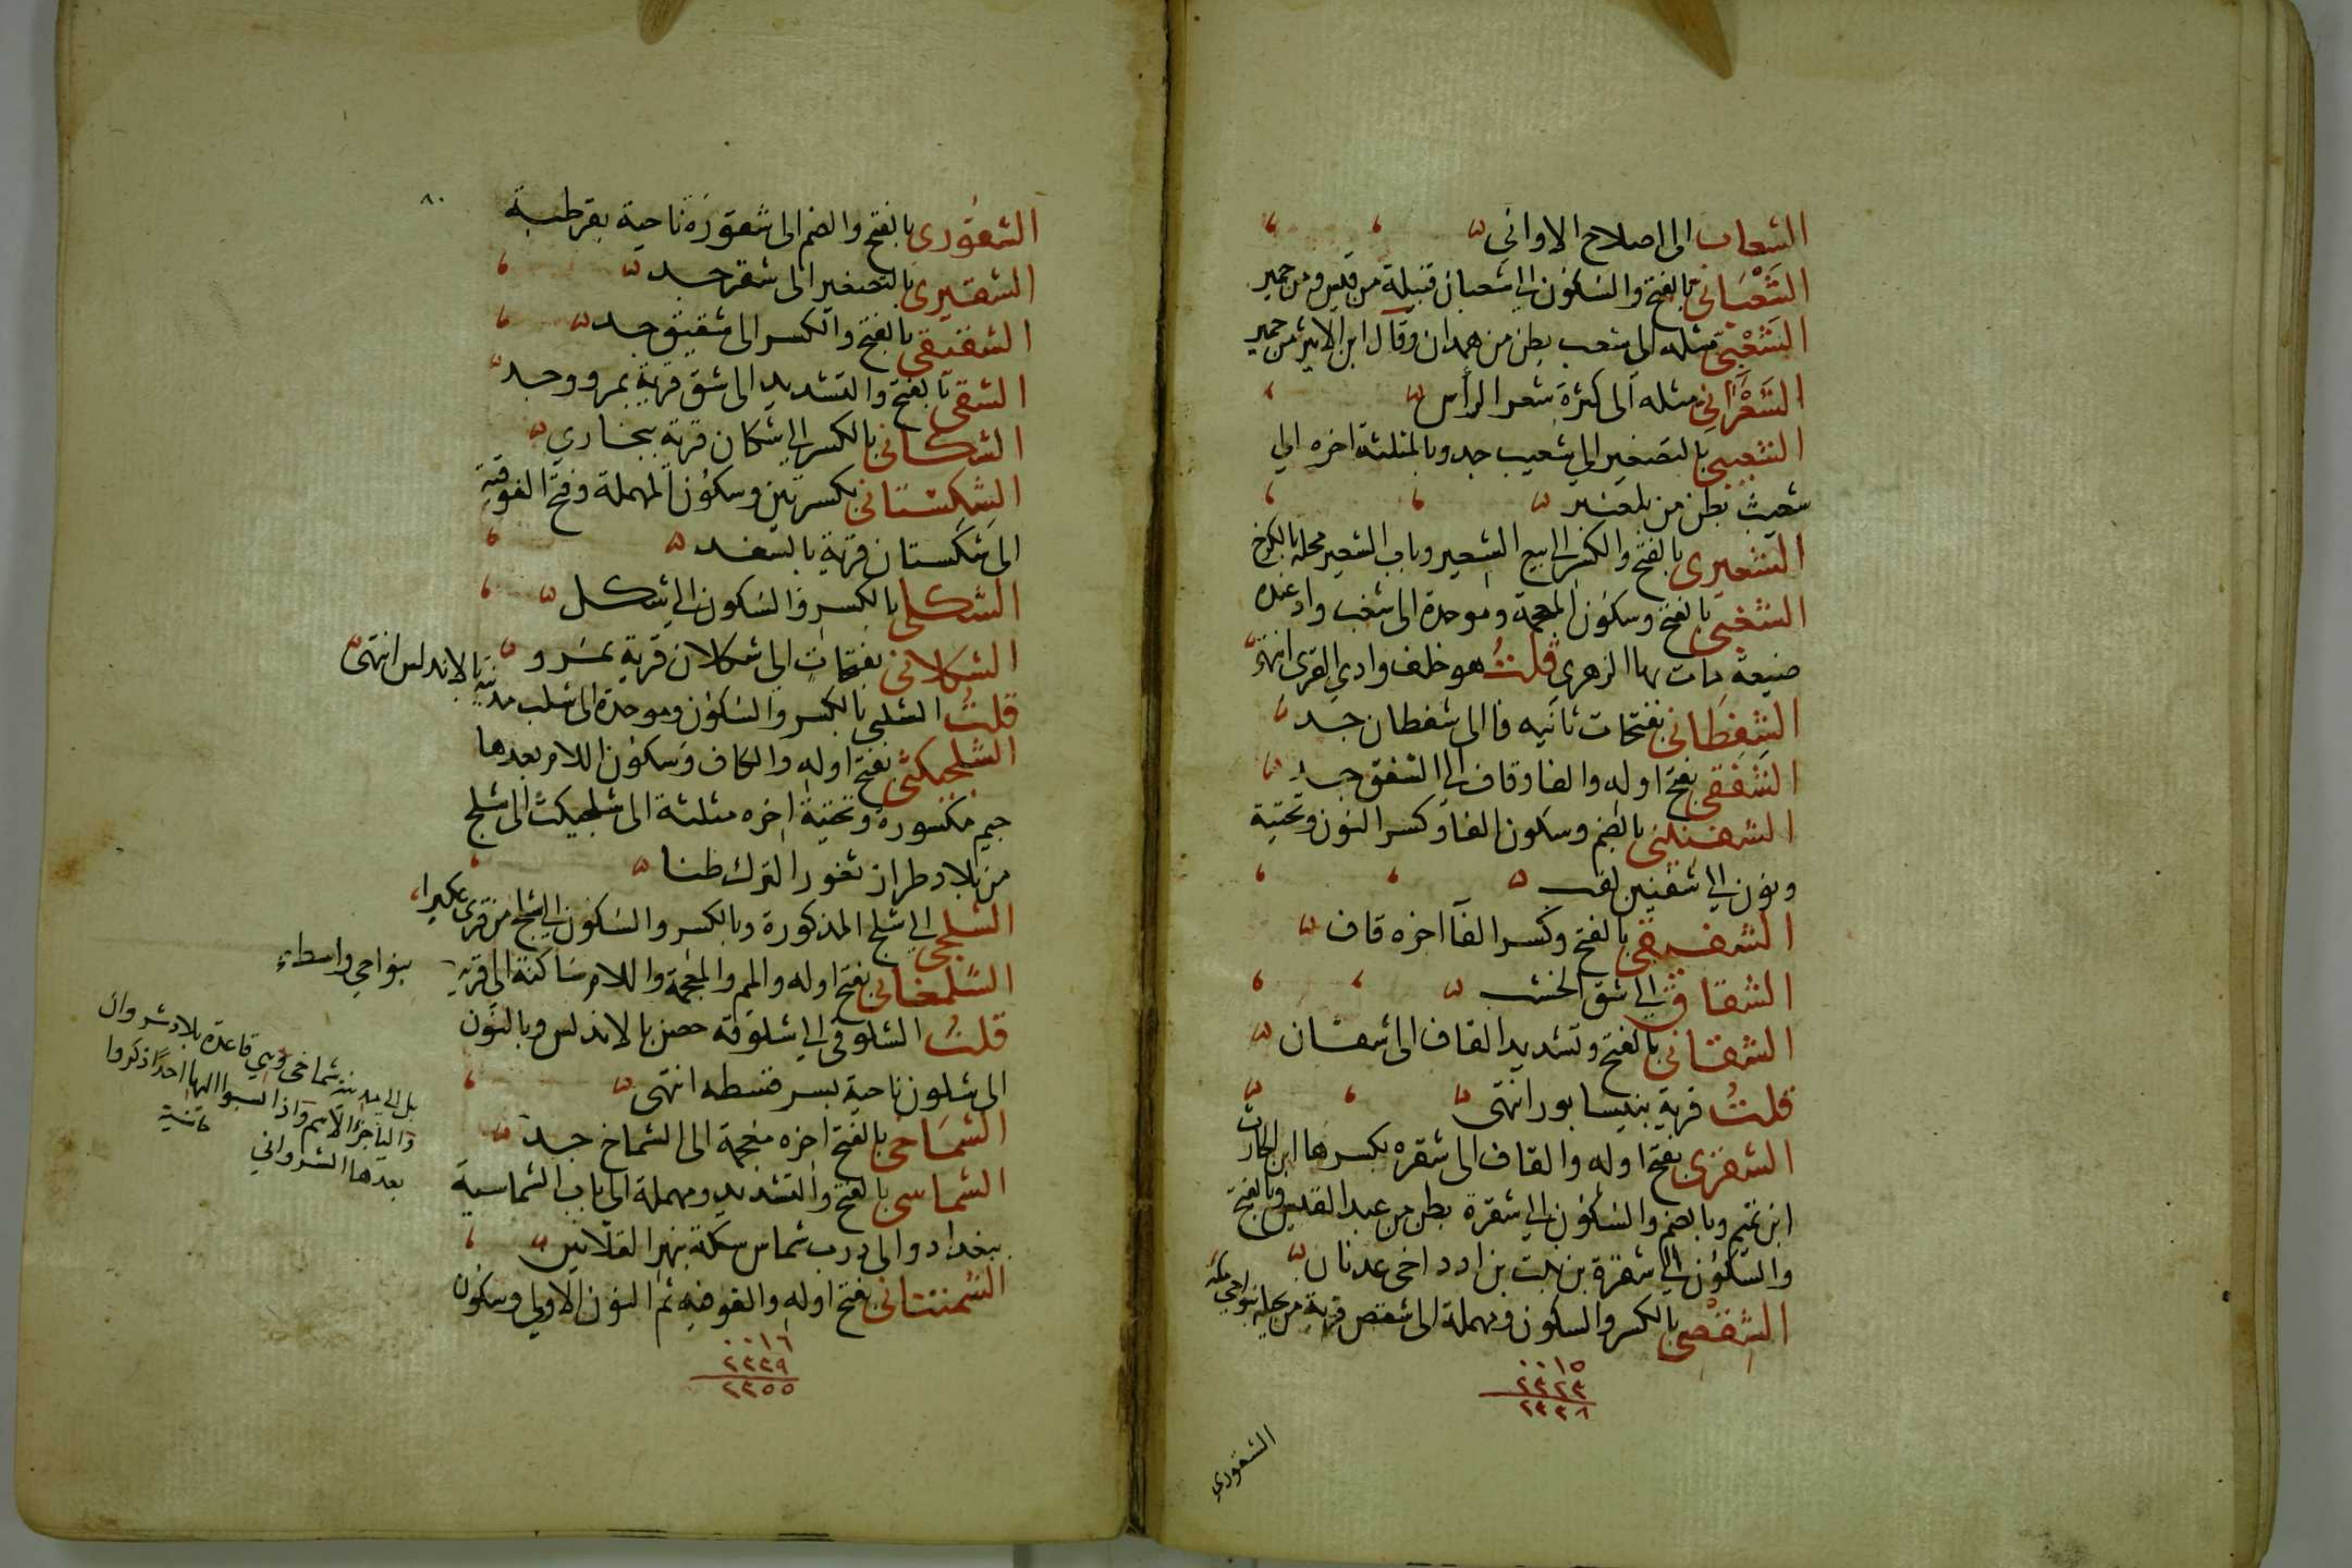 الشعاب الى اصلاح الاواني
الشَّعْبَاني بالفتح والسكون الى شعبان قبيلة من قيس ومن حمير
الشَّعْبي مثله الى شعب بطن من همدان وقال ابن الاثير من حمير
الشَّعْرَاني مثله الى كثرة شعر الرأس
الشعيبي بالتصغير الى شعيب جد وبالمثلثة اخره الى
شعيث بطن من بلعنبر
الشعيرى بالفتح والكسر الى بيع الشعير وباب الشعير محلة بالكرخ
الشغبى بالفتح وسكون المعجمة وموحدة الى شغب واد عنده
ضيعة مات بها الزهرى قلتُ هو خلف وادي القرى انتهى
الشفطانى بفتحات ثانيه فا الى شفطان جد
الشفقى بفتح اوله والفا وقاف الى الشفق جد
الشفنينى بالضم وسكون الفا وكسر النون وتحتية
ونون الى شفنين لقب
الشفيقى بالفتح وكسر الفا اخره قاف
الشقاق الى شق الخشب
الشقانى بالفتح وتشديد القاف الى شقان
قلتُ قرية بنيسابور انتهى
الشقرى بفتح اوله والقاف الى شقره بكسرها ابن الحارث
ابن تميم وبالضم والسكون الى شقرة بطن من عبد القيس وبالفتح
والسكون الى شقرة بن نبت بن ادد اخى عدنان
الشقصى بالكسر والسكون ومهملة الى شقص قرية من بجيلة بنواحى مكة
٠٠١٥
٢٣٢٣
٢٣٣٨
الشقوري
٨٠
الشقُورى بالفتح والضم الى شقورَة ناحية بقرطبة
الشقيرى بالتصغير الى شقر جد
الشقيقى بالفتح والكسر الى شقيق جد
الشقى بالفتح والتشديد الى شق قرية بمرو وجد
الشكانى بالكسر الى شكان قرية ببخارى
الشِكِستانى بكسرتين وسكون المهملة وفتح الفوقية
الى شكستان قرية بالسغد
الشكلى بالكسر والسكون الى شكل
الشكلانى بفتحات الى شكلان قرية بمرو
قلتُ الشلبى بالكسر والسكون وموحدة الى شلب مدينة بالاندلس انتهى
الشلجيكثى بفتح اوله والكاف وسكون اللام بعدها
جيم مكسورة وتحتية اخره مثلثة الى شلجيكث الى شلج
من بلاد طراز ثغور الترك ظنا
الشلجى الى شلج المذكورة وبالكسر والسكون الى شلج من قرى عكبرا
الشلمغانى بفتح اوله والميم والمعجمة واللام ساكنة الى قرية
بنواحي واسط
قلتُ الشلوقى الى شلوقه حصن بالاندلس وبالنون
الى شلون ناحية بسرقسطه انتهى
الشماخى بالفتح اخره معجمة الى الشماخ جد
الشماسى بالفتح والتشديد ومهملة الى باب الشماسية
ببغداد والى درب شماس سكة بنهر القلائين
الشمنتانى بفتح اوله والفوقيه ثم النون الاولى وسكون
٠٠١٦
٢٣٣٩
٢٣٥٥
بل الى مدينة شماخى وهي قاعدة بلاد شروان
واليا جزء الاسم واذا نسبوا اليها احدا ذكروا
بعدها الشرواني